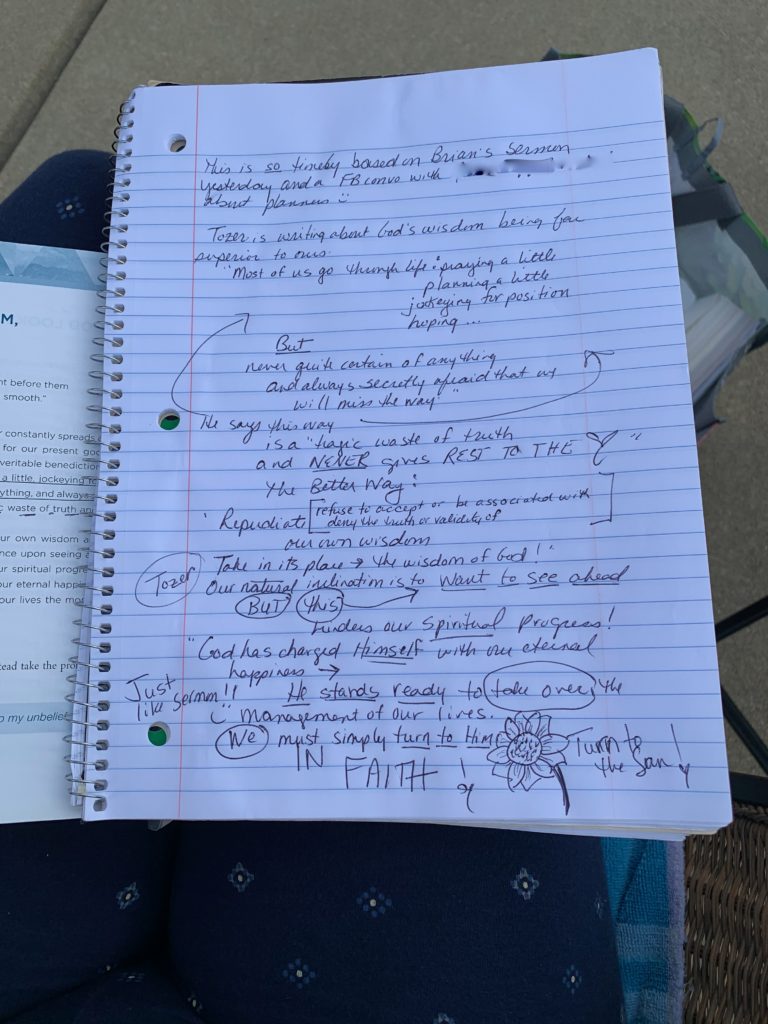 This is so timely based on Brian's sermon
yesterday and a FB convo with
about planners
Tozer is writing about God's wisdom being far
superior to ours.
"Most of us go through life: praying a little
planning a little
jockeying for position
hoping...
But
never quite certain of anything
and always secretly afraid that we
will miss the way"
He says this way
is a "tragic waste of truth
and NEVER gives REST TO THE
"
The Better Way:
"Repudiate [refuse to accept or be associated with
deny the truth or validity of]
our own wisdom
Take in its place → the wisdom of God!"
Tozer
Our natural inclination is to want to see ahead
BUT this
hinders our spiritual progress!
"God has charged Himself with our eternal
happiness →
Just
like sermon!!
He stands ready to take over the
management of our lives.
We must simply turn to Him
IN
FAITH!
Turn to
the Son!
M,
nt before them
smooth."
r constantly spreads
for our present good
veritable benediction
a little, jockeying fo
ything, and always
waste of truth and
ur own wisdom a
nce upon seeing a
ur spiritual progre
our eternal happin
our lives the mo
tead take the pro
p my unbelief